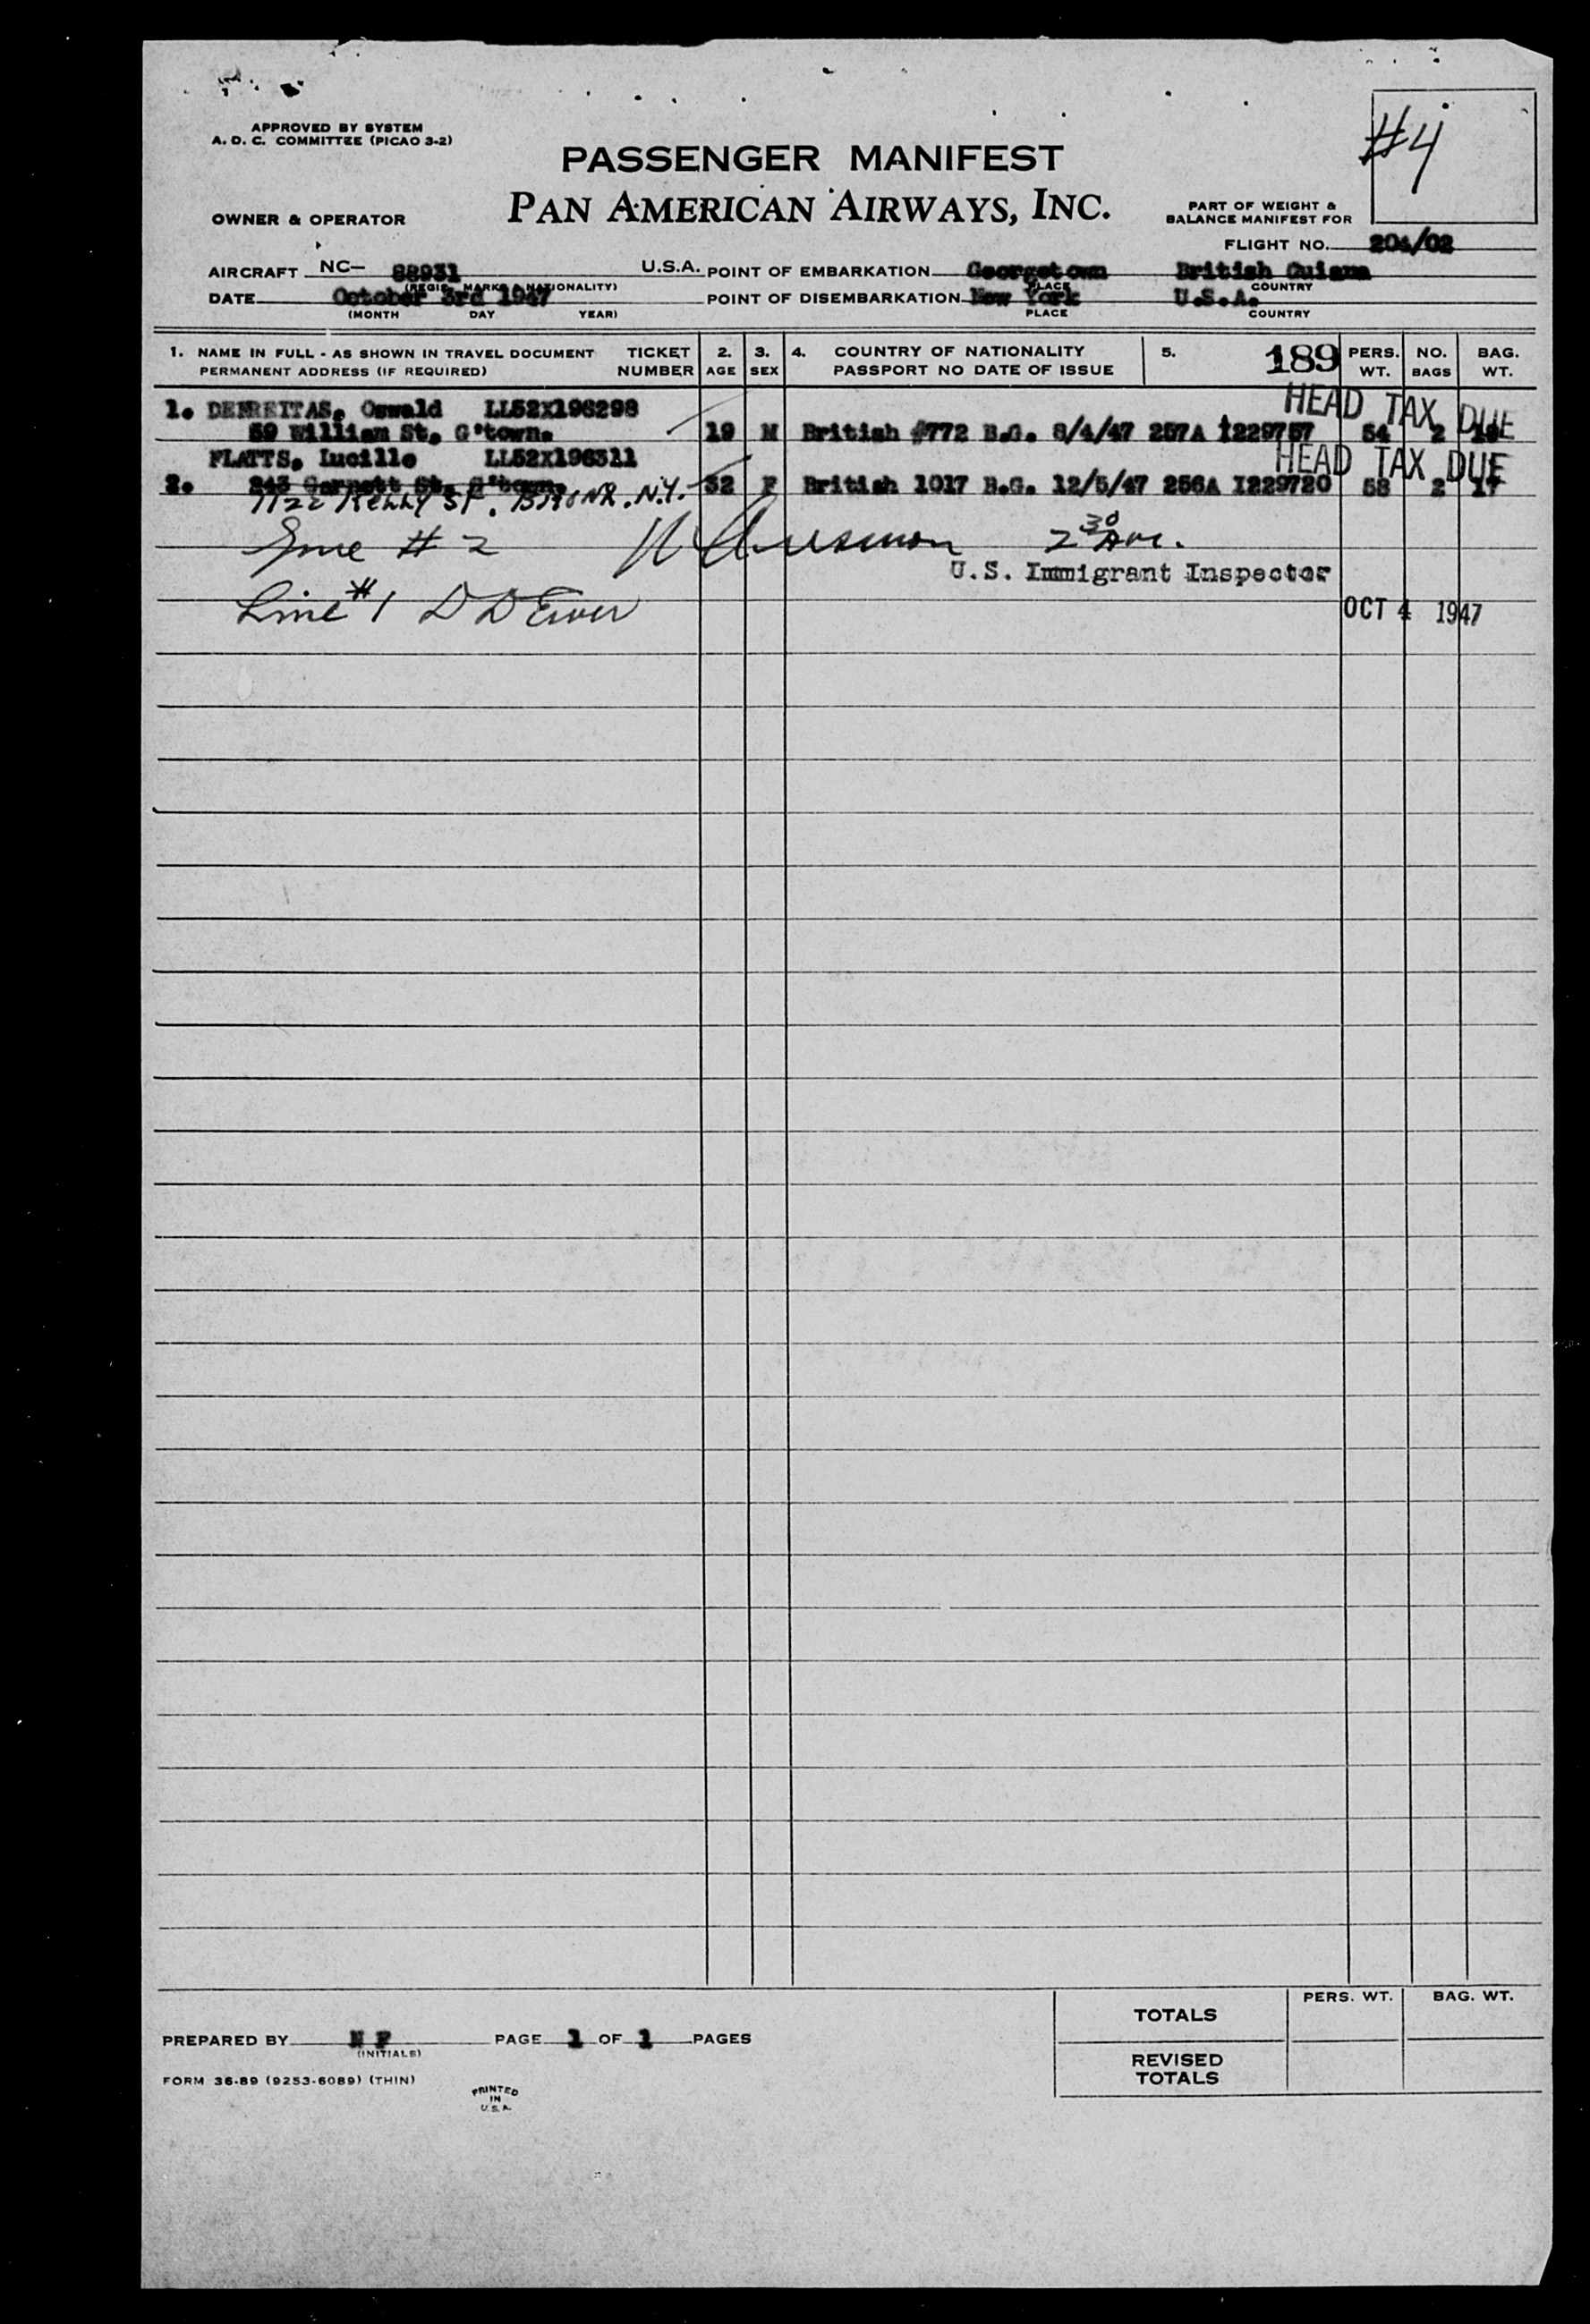 APPROVED BY SYSTEM
A. D. C. COMMITTEE (PICAO 3-2)
#4
PASSENGER MANIFEST
PAN AMERICAN AIRWAYS, INC.
OWNER & OPERATOR
PART OF WEIGHT &
BALANCE MANIFEST FOR
FLIGHT NO. 204/02
AIRCRAFT NC- 88931 U.S.A. POINT OF EMBARKATION Georgetown British Guiana
(REGIS. MARKS & NATIONALITY) PLACE COUNTRY
DATE October 3rd 1947 POINT OF DISEMBARKATION New York U.S.A.
(MONTH DAY YEAR) PLACE COUNTRY
1. NAME IN FULL - AS SHOWN IN TRAVEL DOCUMENT TICKET 2. 3. 4. COUNTRY OF NATIONALITY 5. 189 PERS. NO. BAG.
PERMANENT ADDRESS (IF REQUIRED) NUMBER AGE SEX PASSPORT NO DATE OF ISSUE WT. BAGS WT.
HEAD TAX DUE
1. DEFREITAS, Oswald LL52X196298
59 William St. G'town. 19 M British #772 B.G. 8/4/47 257A I229757 54 2
HEAD TAX DUE
PLATTS, Lucille LL52X196311
2. 243 Garnett St. G'town. 32 F British 1017 B.G. 12/5/47 256A I229720 58 2 17
1122 Kelly St. Bronx. N.Y.
Line # 2
U.S. Immigrant Inspector
Line #1 D D
OCT 4 1947
TOTALS PERS. WT. BAG. WT.
REVISED
TOTALS
PREPARED BY N F PAGE 1 OF 1 PAGES
(INITIALS)
FORM 36-89 (9253-6089) (THIN)
PRINTED
IN
U.S.A.